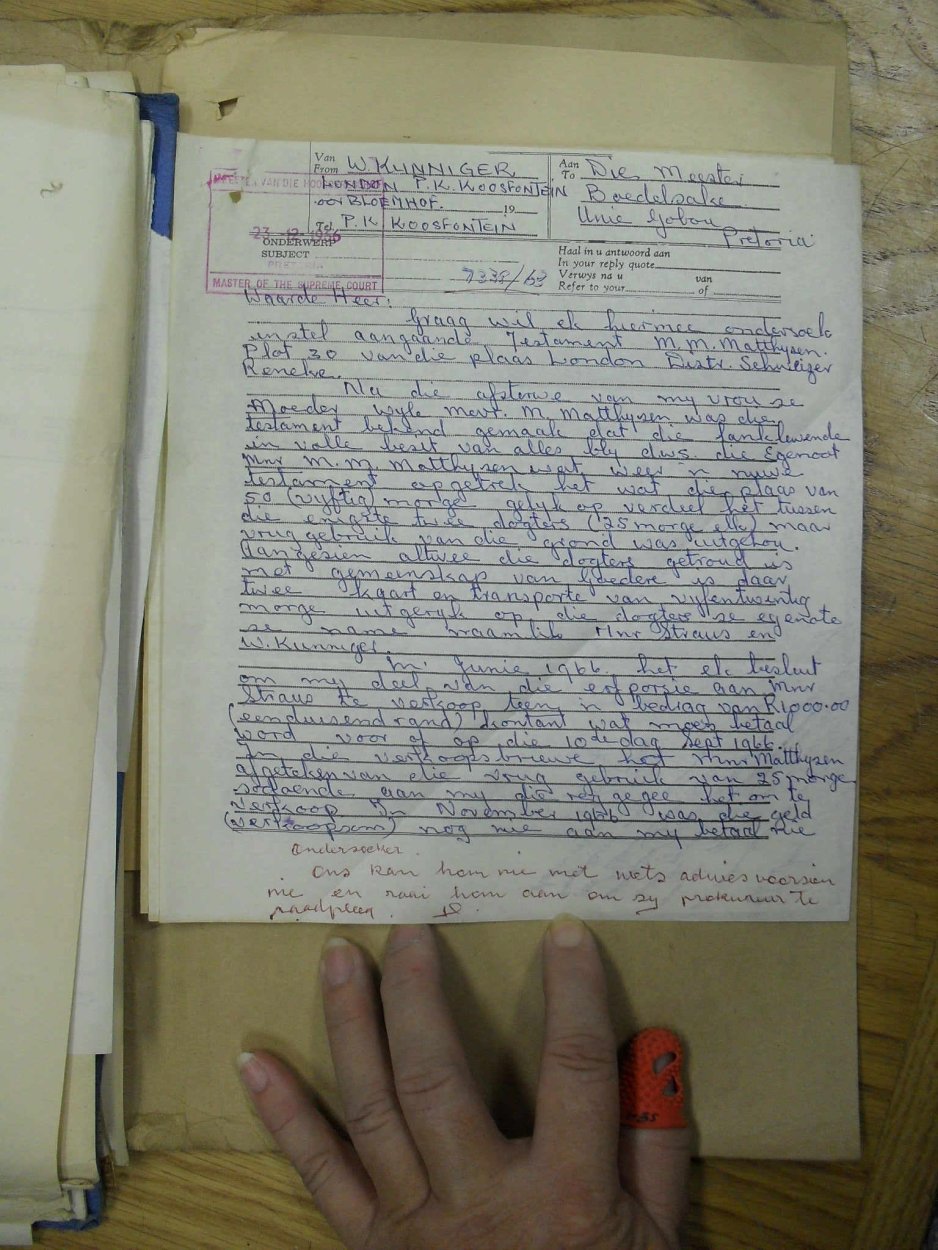 Van From W. KUNNIGER
LONDON P.K. KOOSFONTEIN
oor BLOEMHOF. 19
Tel. P.K KOOSFONTEIN
Aan To Die Meester
Boedelsake
Unie Gebou
Pretoria
23-12-1966
ONDERWERP
SUBJECT
MASTER OF THE SUPREME COURT
7338/63
Haal in u antwoord aan
In your reply quote
Verwys na u van
Refer to your of
Waarde Heer:
Graag wil ek hiermee ondersoek
instel aangaande Testament M.M. Matthysen.
Plot 30 van die plaas London Distr. Schweizer
Reneke.
Na die afsterwe van my vrou se
Moeder wyle mevr. M. Matthysen was die
testament bekend gemaak dat die lanklewende
in volle besit van alles bly dws. die Egenoot
Mnr M.M. Matthysen wat weer 'n nuwe
testament opgetrek het wat die plaas van
50 (vyftig) morge gelyk op verdeel het tussen
die enigste twee dogters (25 morge elk) maar
vruggebruik van die grond was uitgehou.
Aangesien altwee die dogters getroud is
met gemeenskap van Goedere is daar
twee kaart en transporte van vyfentwintig
morge uitgeryk op die dogters se egenote
se name naamlik Mnr Straus en
W. Kunniger.
In Junie 1966 het ek besluit
om my deel van die erfporsie aan Mnr
Straus te verkoop teen 'n bedrag van R1000.00
(eenduisend rand) kontant wat moes betaal
word voor of op die 10 te dag Sept 1966.
In die verkoopsbriewe het Mnr Matthysen
afgeteken van die vrug gebruik van 25 morge
sodoende aan my die reg gegee het om te
verkoop. In November 1966 was die geld
(verkoopsom) nog nie aan my betaal nie
Ondersoeker.
Ons kan hom nie met regs advies voorsien
nie en raai hom aan om sy prokureur te
raadpleeg.